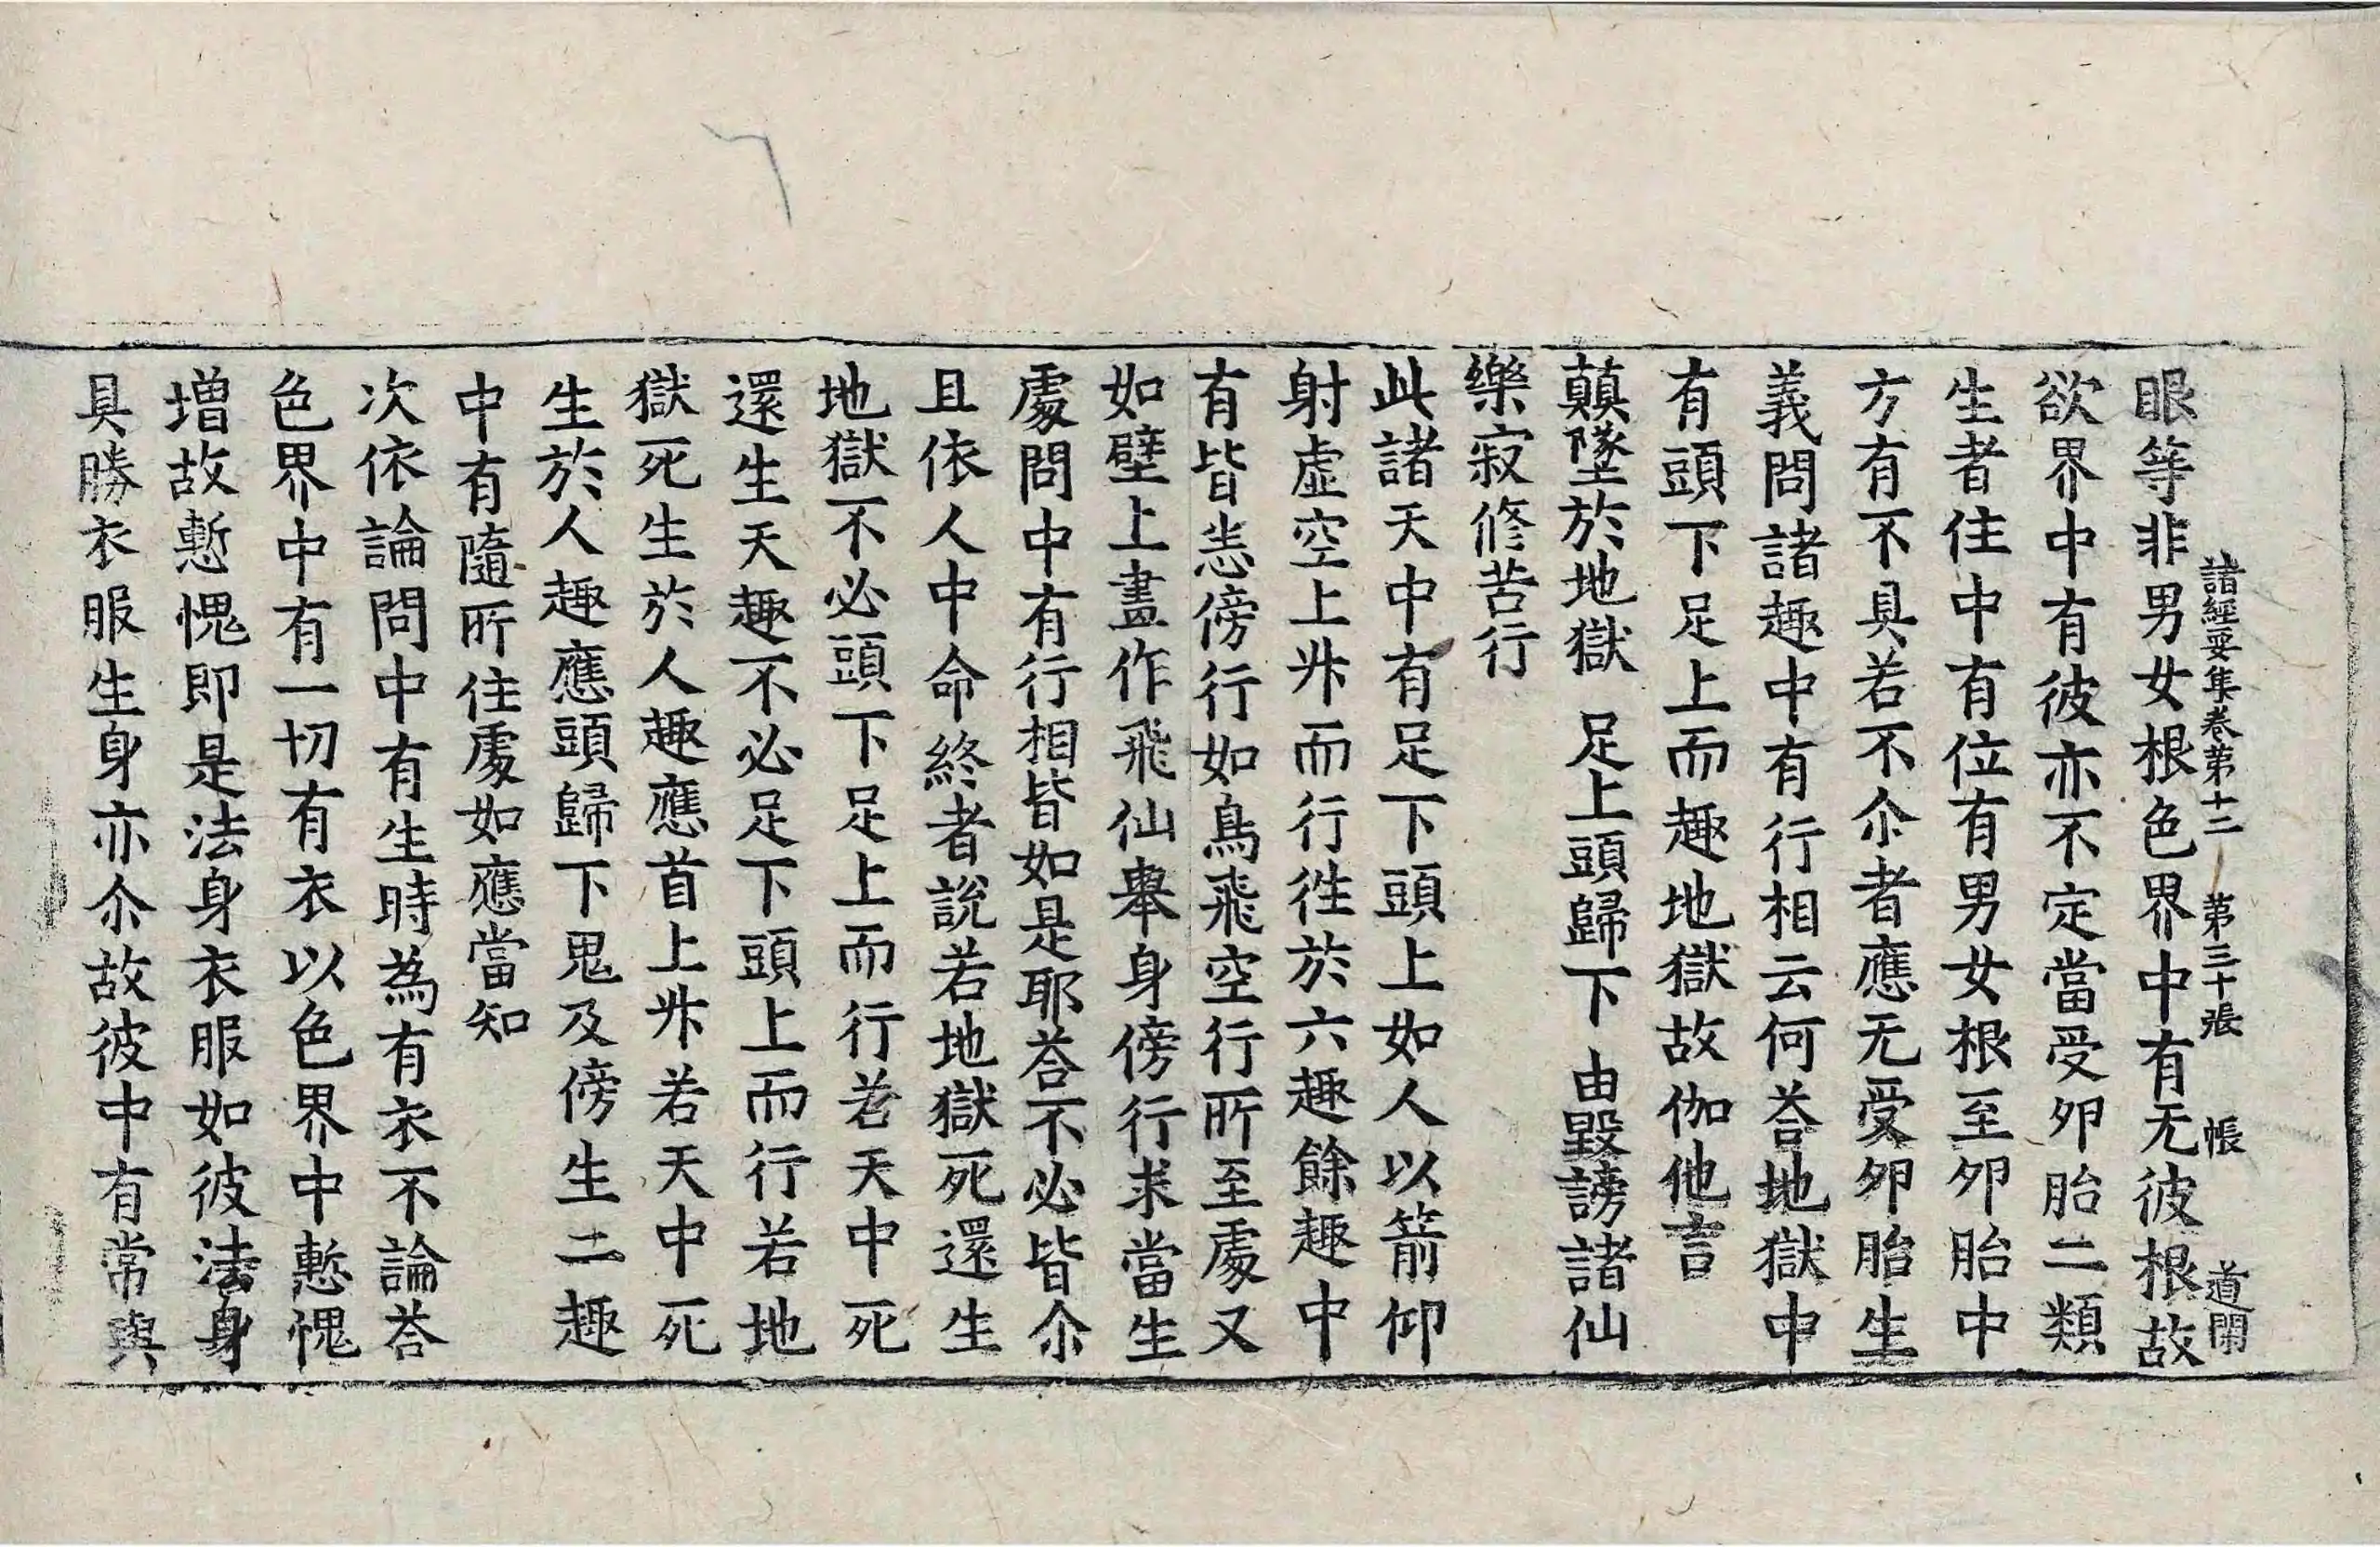 諸經要集卷第十二　第三十張　帳　道開
眼等非男女根色界中有无彼根故
欲界中有彼亦不定當受夘胎二類
生者住中有位有男女根至夘胎中
方有不具若不尒者應无受夘胎生
義問諸趣中有行相云何荅地獄中
有頭下足上而趣地獄故伽他言
顛墜於地獄　足上頭歸下　由毀謗諸仙
樂寂修苦行
此諸天中有足下頭上如人以箭仰
射虛空上昇而行徃於六趣餘趣中
有皆恙傍行如鳥飛空行所至處又
如壁上畫作飛仙舉身傍行求當生
處問中有行相皆如是耶荅不必皆尒
且依人中命終者說若地獄死還生
地獄不必頭下足上而行若天中死
還生天趣不必足下頭上而行若地
獄死生於人趣應首上昇若天中死
生於人趣應頭歸下鬼及傍生二趣
中有隨所住處如應當知
次依論問中有生時為有衣不論荅
色界中有一切有衣以色界中慙愧
增故慙愧即是法身衣服如彼法身
具勝衣服生身亦尒故彼中有常與